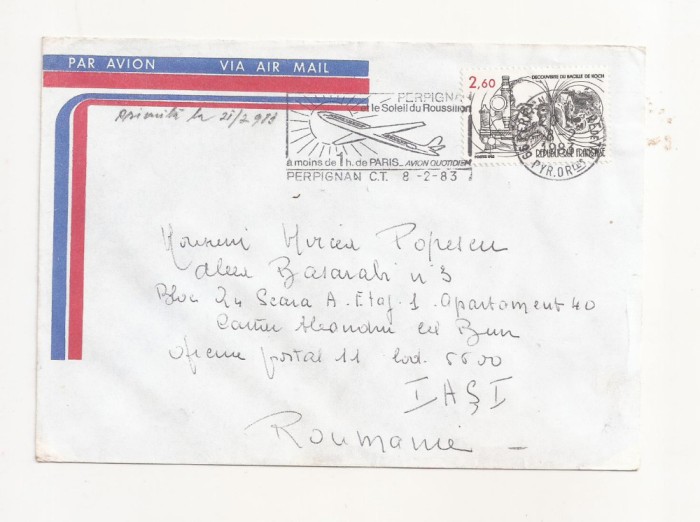 PAR AVION VIA AIR MAIL
la 21/2 983
PERPIGNAN
et le Soleil du Roussillon
à moins de 1 h. de PARIS_ AVION QUOTIDIEN
PERPIGNAN C.T. 8-2-83
2,60
DECOUVERTE DU BACILLE DE KOCH
REPUBLIQUE FRANÇAISE
66 PERPIGNAN
8
1983
PYR. ORles
Mircea Popescu
Aleea Basarabi n°3
Bloc Z4 Scara A. Etaj 1. Apartament 40
Alexandru cel Bun
oficiu postal 11 Cod. 6600
IAŞI
Roumanie _